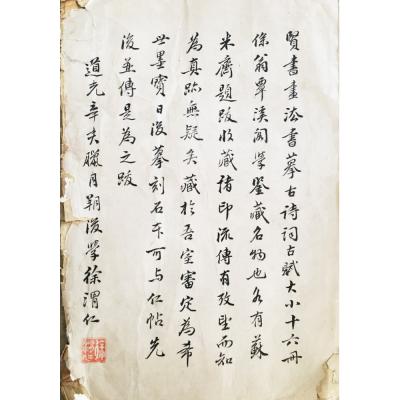 賢書畫法書摹古詩詞古賦大小十六冊
係翁覃溪閣學鑒藏名物也各有蘇
米齋題跋收藏諸印流傳有攷望而知
為真跡無疑矣藏於吾室審定為希
世墨寶日後摹刻石本可与仁帖先
後並傳是為之跋
道光辛夫臘月朔後學徐渭仁